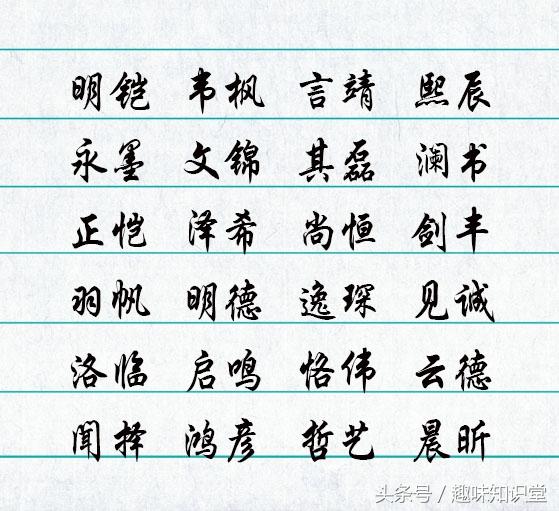 明铠 韦枫 言靖 熙辰
永墨 文锦 其磊 澜书
正恺 泽希 尚恒 剑丰
羽帆 明德 逸琛 见诚
洛临 启鸣 恪伟 云德
闻择 鸿彦 哲艺 晨昕
头条号 / 趣味知识堂